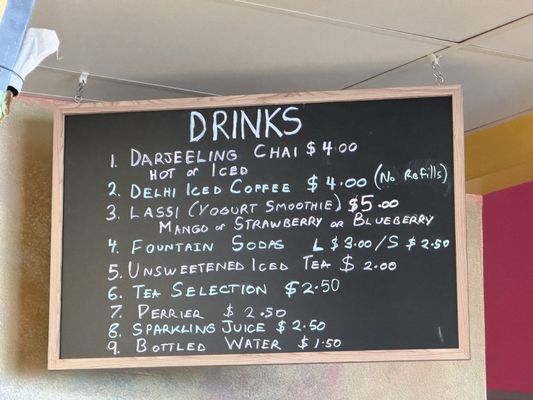 DRINKS
1. DARJEELING CHAI $4.00
HOT or ICED
2. DELHI ICED COFFEE $4.00 (No Refills)
3. LASSI (YOGURT SMOOTHIE) $5.00
MANGO or STRAWBERRY OR BLUEBERRY
4. FOUNTAIN SODAS L $3.00/S $2.50
5. UNSWEETENED ICED TEA $2.00
6. TEA SELECTION $2.50
7. PERRIER $2.50
8. SPARKLING JUICE $2.50
9. BOTTLED WATER $1.50